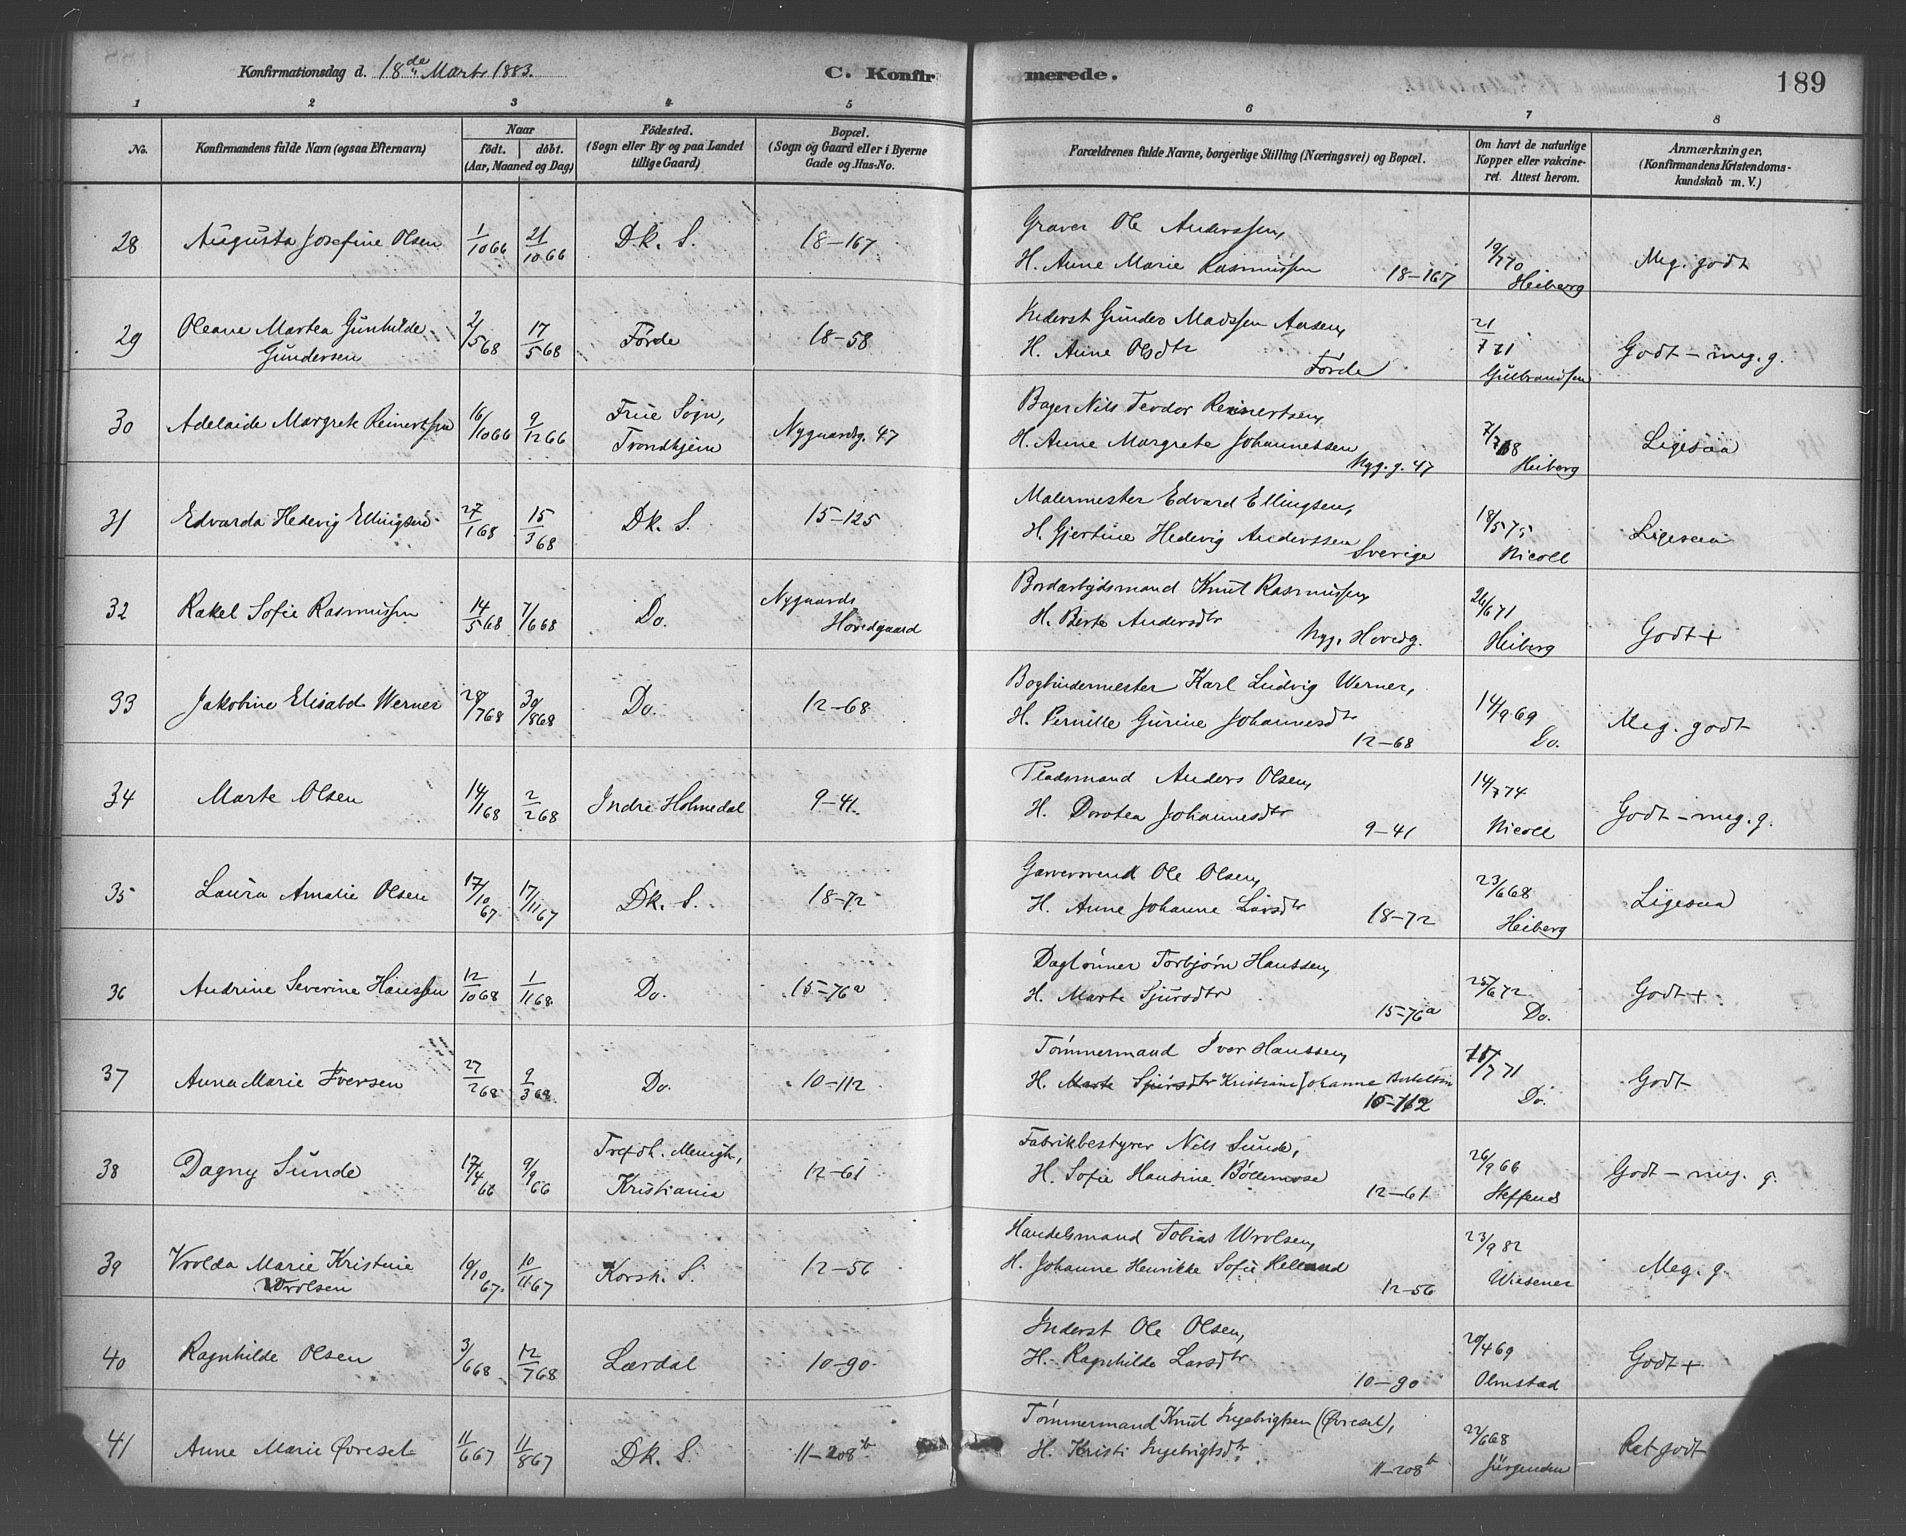 Konfirmationsdag d. 18de Marts 1883.
C. Konfirmerede.
189
1 2 3 4 5 6 7 8
No.
Konfirmandens fulde Navn (ogsaa Efternavn)
Naar
født. døbt.
(Aar, Maaned og Dag)
Fødested.
(Sogn eller By og paa Landet tillige Gaard)
Bopæl.
(Sogn og Gaard eller i Byerne Gade og Hus-No.
Forældrenes fulde Navne, borgerlige Stilling (Næringsvei) og Bopæl.
Om havt de naturlige Kopper eller vakcineret. Attest herom.
Anmærkninger.
(Konfirmandens Kristendomskundskab m. V.)
28 Augusta Josefine Olsen 1/10 66 21/10 66 Dk. S. 18-167 Graver Ole Anderssen, 19/7 70 Meg. godt
H. Anne Marie Rasmussen 18-167 Heiberg
29 Oleane Martea Gunhilde 2/5 68 17/5 68 Førde 18-58 Inderst Gunder Madssen Aasen, 21/7 71 Godt - meg. g.
Gundersen H. Anne Olsdtr Førde Gulbrandsen
30 Adelaide Margrete Reinertsen 16/10 66 9/12 66 Frue Sogn, Trondhjem Nygaardsg. 47 Bager Nils Teodor Reinertsen, 7/7 68 Ligesaa
H. Anne Margrete Johannessen Nyg. g. 47 Heiberg
31 Edvarda Hedevig Ellingsen 27/1 68 15/3 68 Dk. S. 15-125 Malermester Edvard Ellingsen, 18/5 75 Ligesaa
H. Gjertine Hedevig Anderssen Sverige Nicoll
32 Rakel Sofie Rasmussen 14/5 68 7/6 68 Do. Nygaards Hovedgaard Bordarbejdsmand Knut Rasmussen, 26/6 71 Godt +
H. Berte Andersdtr Nyg. Hovedg. Heiberg
33 Jakobine Elisabet Werner 28/7 68 30/8 68 Do. 12-68 Bogbindermester Karl Ludvig Werner, 14/9 69 Meg. godt
H. Pernille Gurine Johannesdtr 12-68 Do.
34 Marte Olsen 14/1 68 2/2 68 Indre Holmedal 9-41. Pladsmand Anders Olsen, 14/7 74 Godt - meg. g.
H. Dorotea Johannesdtr 9-41 Nicoll
35 Laura Amalie Olsen 17/10 67 17/11 67 Dk. S. 18-72 Garversvend Ole Olsen, 23/6 68 Ligesaa
H. Anne Johanne Larsdtr 18-72 Heiberg
36 Andrine Severine Hanssen 12/10 68 1/11 68 Do. 15-76a Dagl​ønner Torbjørn Hanssen, 25/6 72 Godt +
H. Marte Sjursdtr 15-76a Do.
37 Anna Marie Iversen 27/2 68 9/3 68 Do. 10-112 Tømmermand Iver Hanssen, /7 71 Godt
H. Marte Sjursdtr Kristiane Johanne 10-112 Do.
38 Dagny Sunde 17/4 66 9/9 66 Trefdh. Menigh., Kristiania 12-61 Fabrikbestyrer Nils Sunde, 26/9 66 Godt - meg. g.
H. Sofie Hansine Böllemose 12-61 Steffens
39 Vrolda Marie Kristine 19/10 67. 10/11 67 Korsk. S. 12-56 Handelsmand Tobias Wrolsen, 23/9 82 Meg. g.
Wrolsen H. Johanne Henrikke Sofie Helland 12-56 Wiesener
40 Ragnhilde Olsen 3/6 68 12/7 68 Lærdal 10-90 Inderst Ole Olsen, 20/4 69 Godt +
H. Ragnhilde Larsdtr 10-90 Olmstad
41 Anne Marie Øvreset 11/6 67 11/8 67 Dk. S. 11-208b Tømmermand Knut Ingebrigtsen (Øvreset), 22/6 68 Ret godt
H. Kristi Ingebrigtsdtr 11-208b Jürgensen